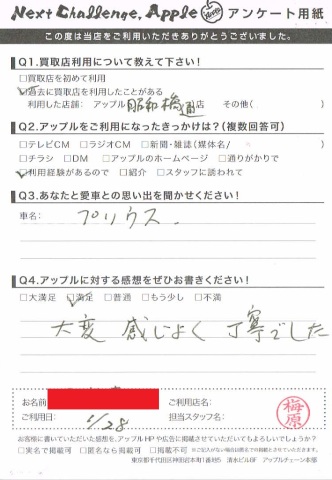 Next Challenge, Apple アンケート用紙
この度は当店をご利用いただきありがとうございました。
Q1.買取店利用について教えて下さい!
□買取店を初めて利用
☑過去に買取店を利用したことがある
利用した店舗: アップル 昭和橋通 店 その他( )
Q2.アップルをご利用になったきっかけは?(複数回答可)
□テレビCM □ラジオCM □新聞・雑誌(媒体名/ )
□チラシ □DM □アップルのホームページ □通りがかりで
☑利用経験があるので □紹介 □スタッフに誘われて
Q3.あなたと愛車との思い出を聞かせください!
車名: プリウス.
Q4.アップルに対する感想をぜひお書きください!
□大満足 ☑満足 □普通 □もう少し □不満
大変 感じよく 丁寧でした
お名前 ご利用店名:
ご利用日: 1/28 担当スタッフ名: 梅原
お客様に書いていただいた感想を、アップルHPや広告に掲載させていただいてもよろしいでしょうか?
□実名で掲載可 □匿名なら掲載可 □掲載不可 ※ご記入がない場合は匿名での掲載とさせていただきます。
東京都千代田区神田岩本町1番地5 清水ビル8F アップルチェーン本部